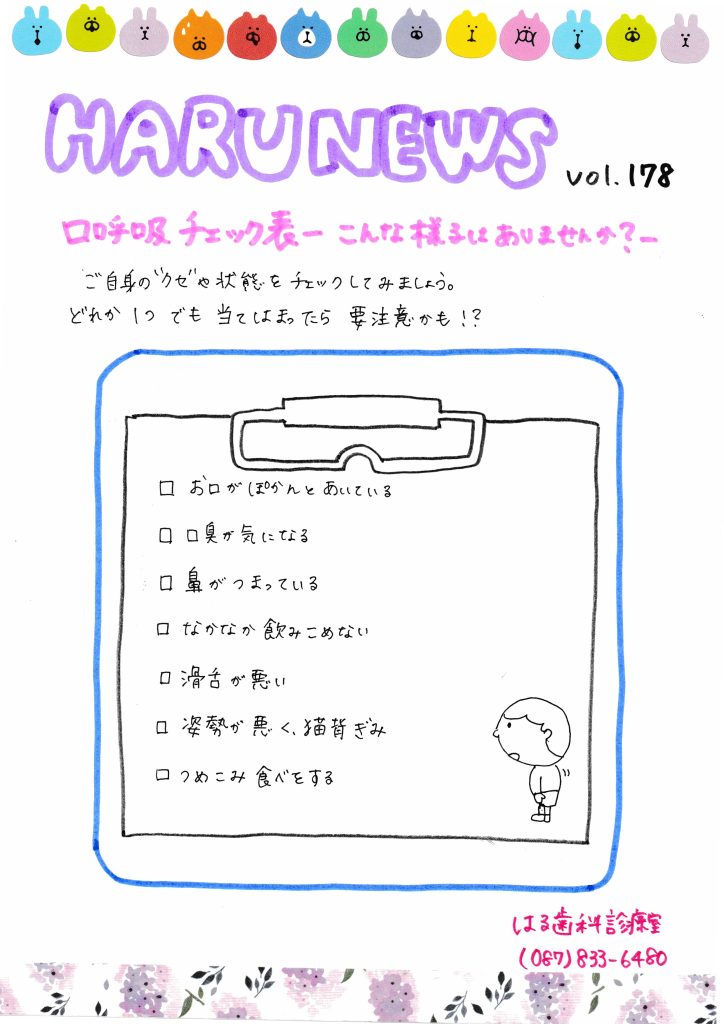 HARU NEWS vol.178
口呼吸チェック表ー こんな様子はありませんか?ー
ご自身の"クセ"や状態をチェックしてみましょう。
どれか1つでも当てはまったら要注意かも!?
□ お口がぽかんとあいている
□ 口臭が気になる
□ 鼻がつまっている
□ なかなか飲みこめない
□ 滑舌が悪い
□ 姿勢が悪く、猫背ぎみ
□ つめこみ食べをする
はる歯科診療室
(087)833-6480